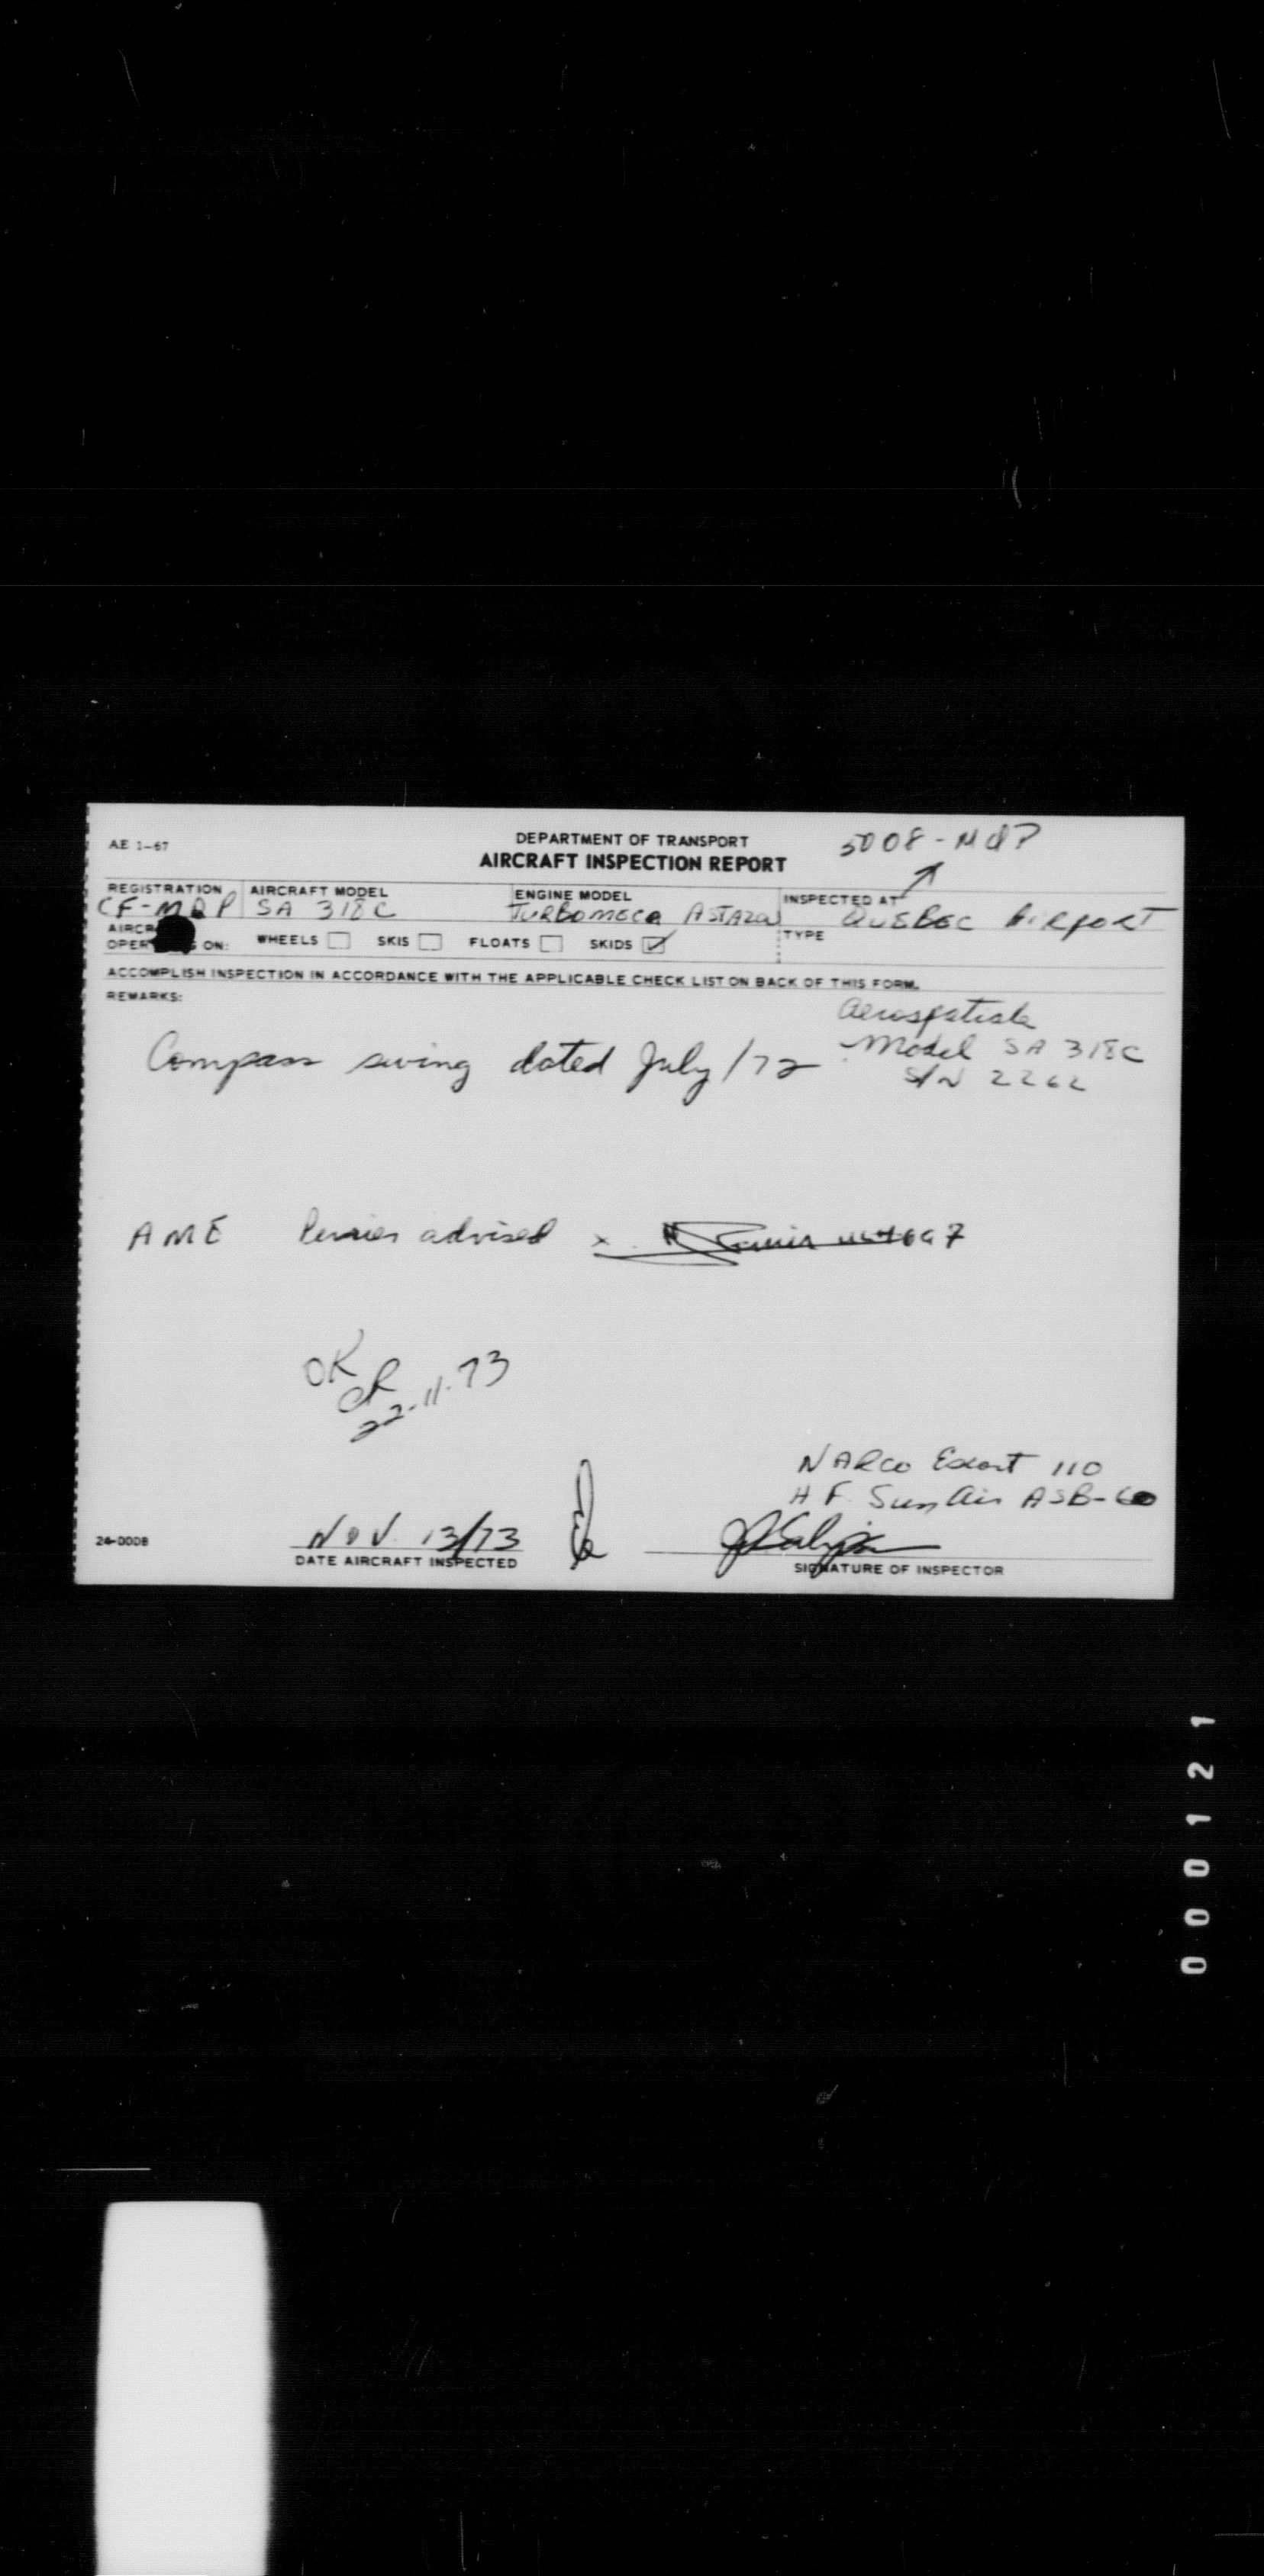 AE 1-67
DEPARTMENT OF TRANSPORT
AIRCRAFT INSPECTION REPORT
5008-MQP
REGISTRATION AIRCRAFT MODEL ENGINE MODEL INSPECTED AT
CF-MQP SA 318C TURBOMECA ASTAZOU QUEBEC AIRPORT
AIRCR
OPER S ON: WHEELS SKIS FLOATS SKIDS TYPE
ACCOMPLISH INSPECTION IN ACCORDANCE WITH THE APPLICABLE CHECK LIST ON BACK OF THIS FORM.
REMARKS:
Aerospatiale
Model SA 318C
S/N 2262
Compass swing dated July/72
AME advised x
OK
22.11.73
NARCO Escort 110
HF. SunAir ASB-60
NOV. 13/73
24-0008
DATE AIRCRAFT INSPECTED SIGNATURE OF INSPECTOR
000121